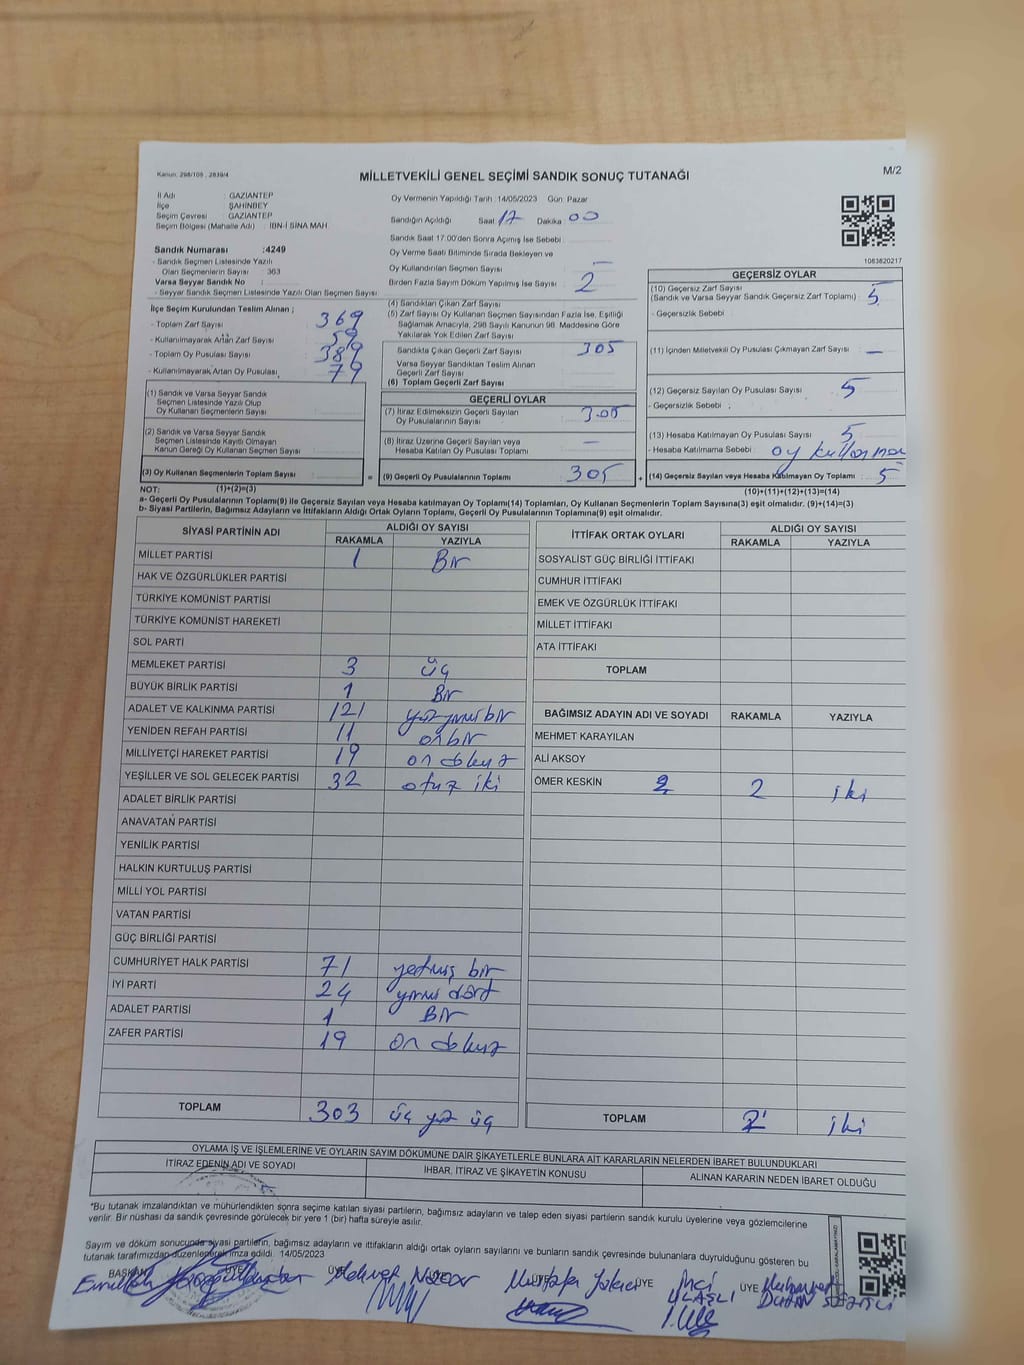 Kanun: 298/105 , 2839/4
MİLLETVEKİLİ GENEL SEÇİMİ SANDIK SONUÇ TUTANAĞI
M/2
İl Adı : GAZİANTEP
İlçe : ŞAHİNBEY
Seçim Çevresi : GAZİANTEP
Seçim Bölgesi (Mahalle Adı) : İBN-İ SİNA MAH
Sandık Numarası :4249
- Sandık Seçmen Listesinde Yazılı
Olan Seçmenlerin Sayısı : 363
Varsa Seyyar Sandık No :
- Seyyar Sandık Seçmen Listesinde Yazılı Olan Seçmen Sayısı:
Oy Vermenin Yapıldığı Tarih :14/05/2023 Gün: Pazar
Sandığın Açıldığı Saat 17 Dakika 00
Sandık Saat 17.00'den Sonra Açımış İse Sebebi
Oy Verme Saati Bitiminde Sırada Bekleyen ve
Oy Kullandırılan Seçmen Sayısı —
Birden Fazla Sayım Döküm Yapılmış İse Sayısı 2
1083820217
İlçe Seçim Kurulundan Teslim Alınan ;
- Toplam Zarf Sayısı 369
- Kullanılmayarak Artan Zarf Sayısı 59
- Toplam Oy Pusulası Sayısı 389
- Kullanılmayarak Artan Oy Pusulası, 79
(1) Sandık ve Varsa Seyyar Sandık
Seçmen Listesinde Yazılı Olup
Oy Kullanan Seçmenlerin Sayısı
(2) Sandık ve Varsa Seyyar Sandık
Seçmen Listesinde Kayıtlı Olmayan
Kanun Gereği Oy Kullanan Seçmen Sayısı
(3) Oy Kullanan Seçmenlerin Toplam Sayısı
(4) Sandıktan Çıkan Zarf Sayısı
(5) Zarf Sayısı Oy Kullanan Seçmen Sayısından Fazla İse, Eşitliği
Sağlamak Amacıyla, 298 Sayılı Kanunun 98. Maddesine Göre
Yakılarak Yok Edilen Zarf Sayısı
Sandıkta Çıkan Geçerli Zarf Sayısı 305
Varsa Seyyar Sandıktan Teslim Alınan
Geçerli Zarf Sayısı
(6) Toplam Geçerli Zarf Sayısı
GEÇERLİ OYLAR
(7) İtiraz Edilmeksizin Geçerli Sayılan
Oy Pusulalarının Sayısı 305
(8) İtiraz Üzerine Geçerli Sayılan veya
Hesaba Katılan Oy Pusulası Toplamı —
= (9) Geçerli Oy Pusulalarının Toplamı 305 +
GEÇERSİZ OYLAR
(10) Geçersiz Zarf Sayısı
(Sandık ve Varsa Seyyar Sandık Geçersiz Zarf Toplamı) 5
- Geçersizlik Sebebi
(11) İçinden Milletvekili Oy Pusulası Çıkmayan Zarf Sayısı —
(12) Geçersiz Sayılan Oy Pusulası Sayısı 5
- Geçersizlik Sebebi ;
(13) Hesaba Katılmayan Oy Pusulası Sayısı 5
- Hesaba Katılmama Sebebi oy kullanma
(14) Geçersiz Sayılan veya Hesaba Katılmayan Oy Toplamı 5
NOT: (1)+(2)=(3)
(10)+(11)+(12)+(13)=(14)
a- Geçerli Oy Pusulalarının Toplamı(9) ile Geçersiz Sayılan veya Hesaba katılmayan Oy Toplamı(14) Toplamları, Oy Kullanan Seçmenlerin Toplam Sayısına(3) eşit olmalıdır. (9)+(14)=(3)
b- Siyasi Partilerin, Bağımsız Adayların ve İttifakların Aldığı Ortak Oyların Toplamı, Geçerli Oy Pusulalarının Toplamına(9) eşit olmalıdır.
SİYASİ PARTİNİN ADI ALDIĞI OY SAYISI
RAKAMLA YAZIYLA
MİLLET PARTİSİ 1 Bir
HAK VE ÖZGÜRLÜKLER PARTİSİ
TÜRKİYE KOMÜNİST PARTİSİ
TÜRKİYE KOMÜNİST HAREKETİ
SOL PARTİ
MEMLEKET PARTİSİ 3 üç
BÜYÜK BİRLİK PARTİSİ 1 Bir
ADALET VE KALKINMA PARTİSİ 121 yüz yirmi bir
YENİDEN REFAH PARTİSİ 11 on bir
MİLLİYETÇİ HAREKET PARTİSİ 19 on dokuz
YEŞİLLER VE SOL GELECEK PARTİSİ 32 otuz iki
ADALET BİRLİK PARTİSİ
ANAVATAN PARTİSİ
YENİLİK PARTİSİ
HALKIN KURTULUŞ PARTİSİ
MİLLİ YOL PARTİSİ
VATAN PARTİSİ
GÜÇ BİRLİĞİ PARTİSİ
CUMHURİYET HALK PARTİSİ 71 yetmiş bir
İYİ PARTİ 24 yirmi dört
ADALET PARTİSİ 1 Bir
ZAFER PARTİSİ 19 on dokuz
TOPLAM 303 üç yüz üç
İTTİFAK ORTAK OYLARI ALDIĞI OY SAYISI
RAKAMLA YAZIYLA
SOSYALİST GÜÇ BİRLİĞİ İTTİFAKI
CUMHUR İTTİFAKI
EMEK VE ÖZGÜRLÜK İTTİFAKI
MİLLET İTTİFAKI
ATA İTTİFAKI
TOPLAM
BAĞIMSIZ ADAYIN ADI VE SOYADI RAKAMLA YAZIYLA
MEHMET KARAYILAN
ALİ AKSOY
ÖMER KESKİN 2 2 iki
TOPLAM 2 iki
OYLAMA İŞ VE İŞLEMLERİNE VE OYLARIN SAYIM DÖKÜMÜNE DAİR ŞİKAYETLERLE BUNLARA AİT KARARLARIN NELERDEN İBARET BULUNDUKLARI
İTİRAZ EDENİN ADI VE SOYADI İHBAR, İTİRAZ VE ŞİKAYETİN KONUSU ALINAN KARARIN NEDEN İBARET OLDUĞU
*Bu tutanak imzalandıktan ve mühürlendikten sonra seçime katılan siyasi partilerin, bağımsız adayların ve talep eden siyasi partilerin sandık kurulu üyelerine veya gözlemcilerine
verilir. Bir nüshası da sandık çevresinde görülecek bir yere 1 (bir) hafta süreyle asılır.
Sayım ve döküm sonucunda siyasi partilerin, bağımsız adayların ve ittifakların aldığı ortak oyların sayılarını ve bunların sandık çevresinde bulunanlara duyrulduğunu gösteren bu
tutanak tarafımızdan düzenlenerek imza edildi. 14/05/2023
BAŞKAN ÜYE ÜYE ÜYE ÜYE ÜYE
Mustafa
İnci
ULAŞLI